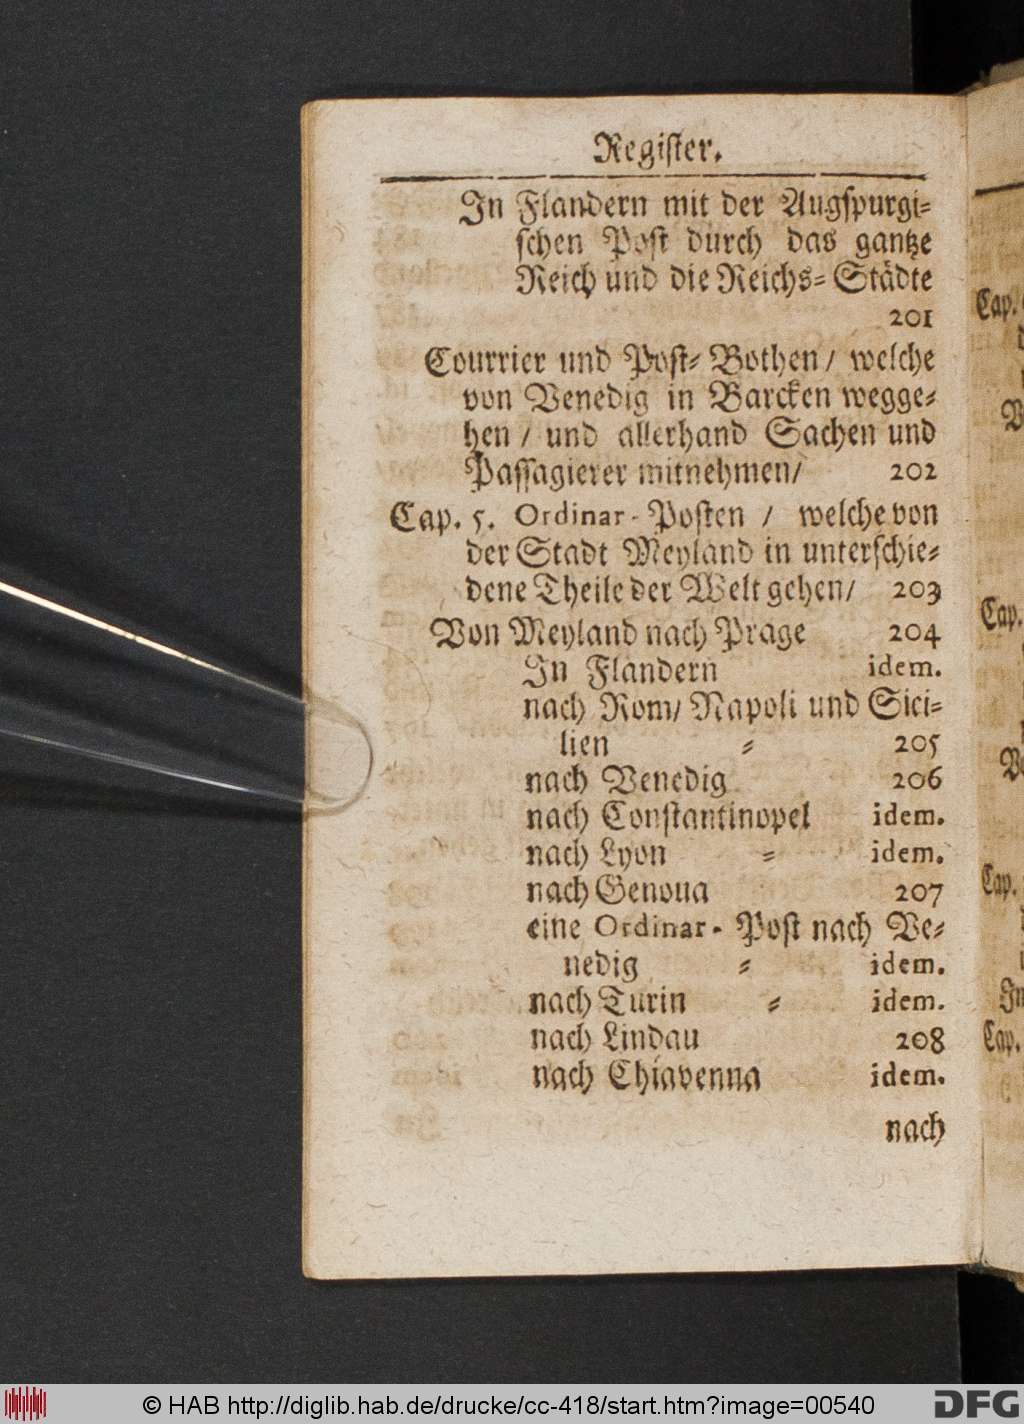 Register.
In Flandern mit der Augspurgi⸗
schen Post durch das gantze
Reich und die Reichs⸗Städte
201
Courrier und Post⸗Bothen/ welche
von Venedig in Barcken wegge⸗
hen / und allerhand Sachen und
Passagierer mitnehmen/ 202
Cap. 5. Ordinar-Posten / welche von
der Stadt Meyland in unterschie⸗
dene Theile der Welt gehen/ 203
Von Meyland nach Prage 204
In Flandern idem.
nach Rom/ Napoli und Sici⸗
lien ⸗ 205
nach Venedig 206
nach Constantinopel idem.
nach Lyon ⸗ idem.
nach Genoua 207
eine Ordinar-Post nach Ve⸗
nedig ⸗ idem.
nach Turin ⸗ idem.
nach Lindau 208
nach Chiavenna idem.
nach
Cap.
Cap.
Cap.
In
Cap.
© HAB http://diglib.hab.de/drucke/cc-418/start.htm?image=00540
DFG